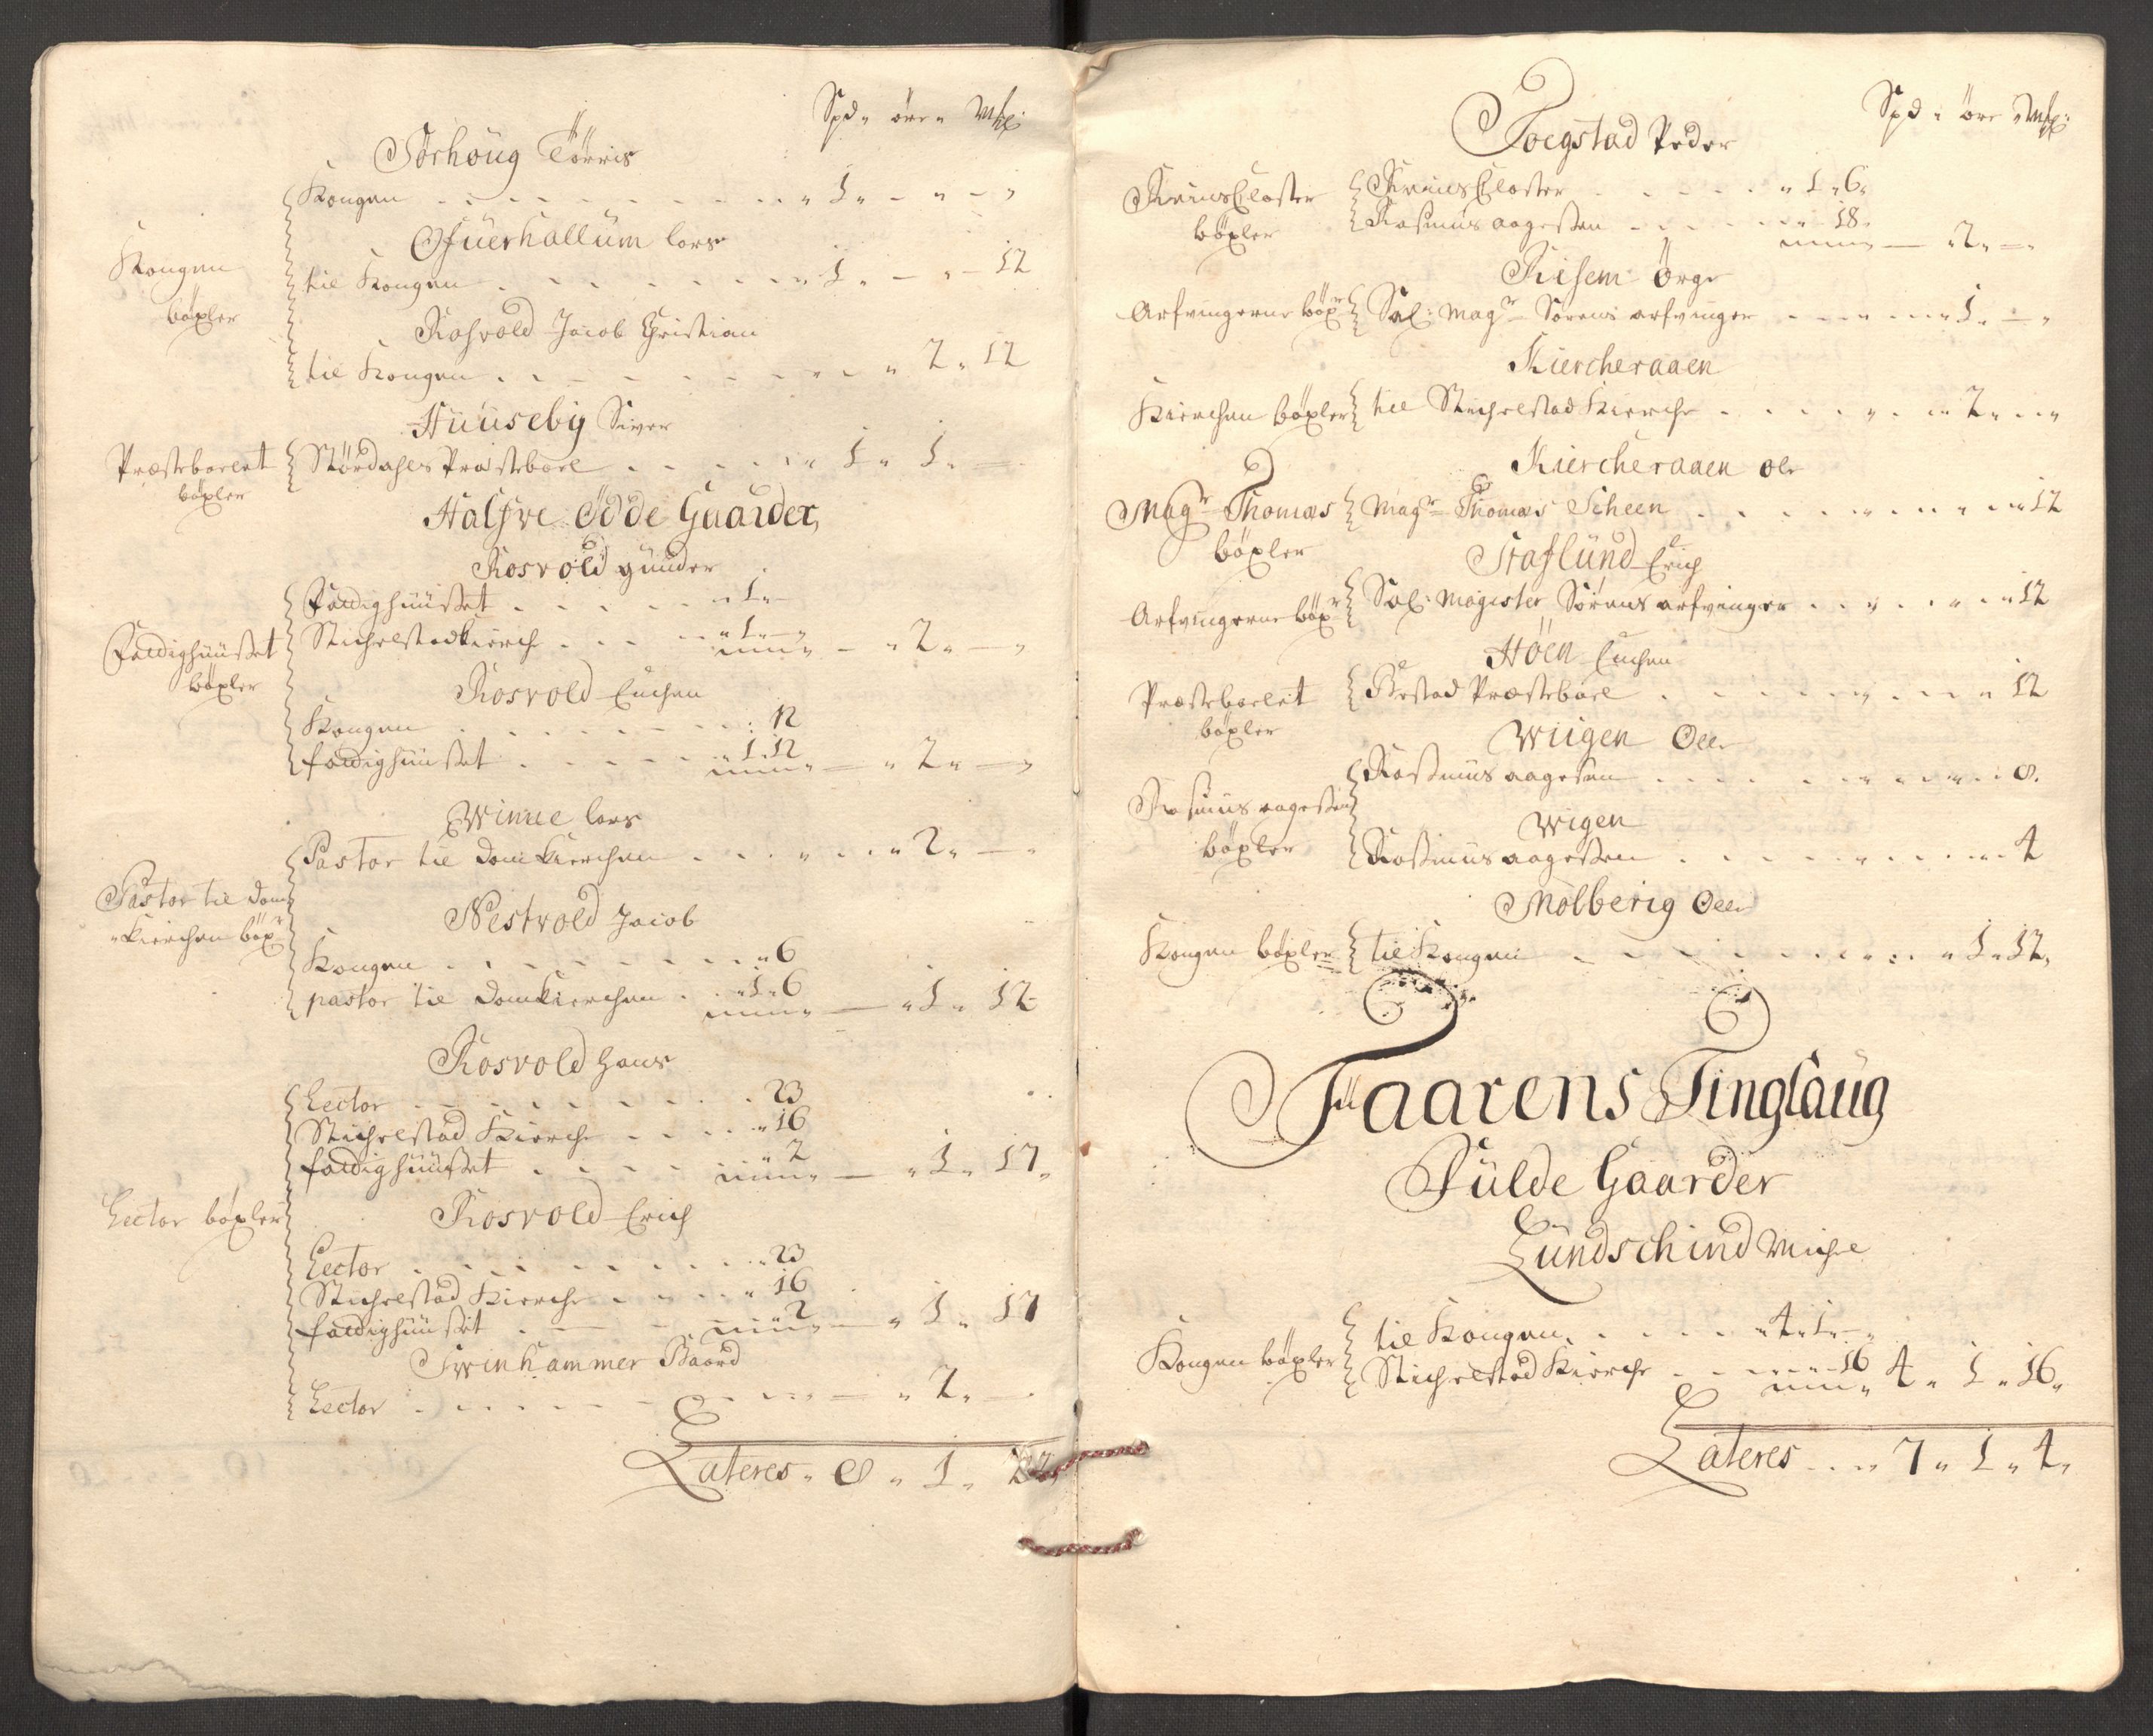 Spd „ öre „ Mkl:
Sörhöug Törris
Kongen . . . . . . . . „ 1 „ - „ - „
Ofuerhallum lars
Kongen
böxler
til Kongen . . . . . . . „ 1 „ - „ - 12
Rosvold Jacob Christian
til Kongen . . . . . . . . „ 2 „ 12
Huusebÿ Siver
Præsteboelet
böxler
Stördahls Præsteboel . . . . . „ 1 „ 1 „ -
Halfve Ödde Gaarder
Rosvold gunder
Fattighuuset
böxler
Fattighuuset . . . . . „ 1 „ -
Stichelstadkierch . . . . „ 1 „ - „ - „ 2 „ - „
Rosvold Euchen
Kongen . . . . . . . . : 12
fattighuuset . . . . . „ 1 . 12 - „ 2 „ - „
Winne lars
Pastor til Domkierchen . . . . . . „ 2 „ - „
Pastor til Dom
„kierchen böxr
Nestvold Jacob
Kongen . . . . . . . . „ 6
pastor til Domkierchen . . „ 1 „ 6 - „ 1 „ 12
Rosvold Hans
Lector . . . . . . . . . 23
Stichelstad Kierche . . . . „ 16
fattighuuset . . . . „ 2 - „ 1 „ 17 „
Lector böxler
Rosvold Erich
Lector . . . . . . . . . „ 23
Stichelstad Kierche . . . . „ 16
fattighuuset . . . 2 - „ 1 „ 17
Svinhammer Baard
Lector . . . . . . . . . „ 2 „ -
Lateres „ 8 „ 1 „
Spd „ öre „ Mkl:
Togstad Peder
Reins Closter
böxler
Reins Closter . . . . . „ 1 „ 6 „
Rasmus aagesen . . . . . „ 18 „ - „ 2 „ - „
Risem Örge
Arfvingerne böxr
Sal: Magr Sörens arfvinger . . . . . . „ 1 „ - „
Kircheraaen
Kierchen böxler
til Stichelstad Kierche . . . . . . „ 2 „ . . „
Kircheraaen ole
Magr Thomas
böxler
Magr Thomas Scheen . . . . . . . „ 12
Staflund Erich
Arfvingerne böxr
Sal: Magister Sörens arfvinger . . . . . „ 12
Höen Euchen
Præsteboelet
böxler
Bestad Præsteboel . . . . . . . . „ 12
Wiigen Olle
Rasmus aagesen
böxler
Rasmus aagesen . . . . . . . . . 8.
Wigen
Rasmus aagesen . . . . . . . . . 4
Molberig Olle
Kongen böxler
til Kongen . . . . . . . . . „ 1 „ 12 „
Faarens Tinglaug
Fulde Gaarder
Lundschind Michel
Kongen böxler
til Kongen . . . . . . „ 4 „ 1 „ - „
Stichelstad Kierche . . . . . . 16 „ 4 „ 1 „ 16 „
Lateres . . . „ 7 „ 1 „ 4 „